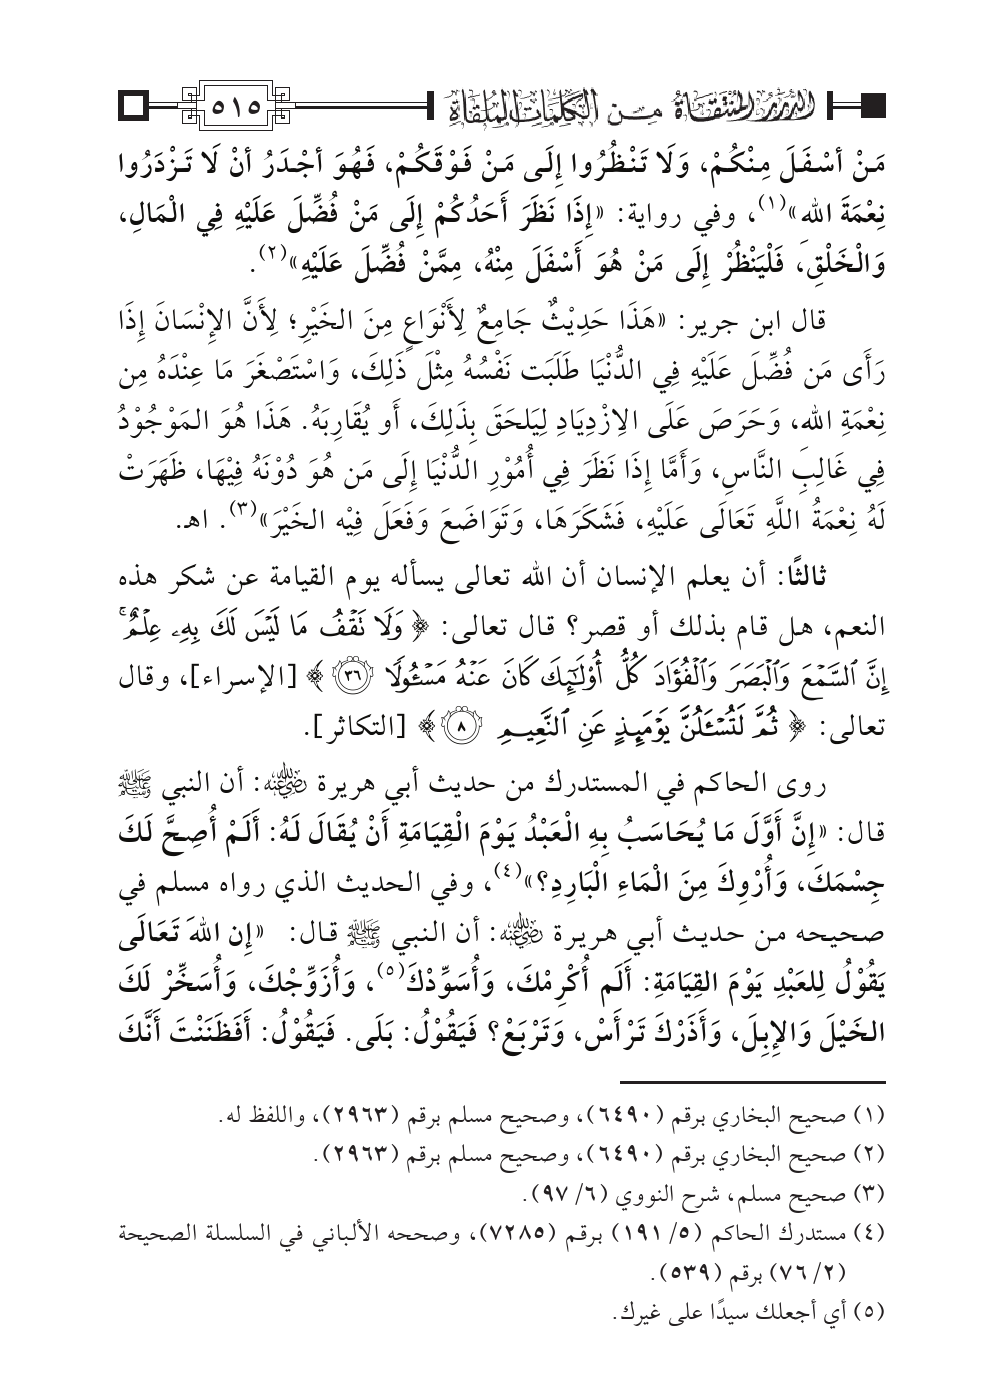 الدرر المنتقاة من الكلمات الملقاة ٥١٥
مَنْ أسْفَلَ مِنْكُمْ، وَلَا تَنْظُرُوا إِلَى مَنْ فَوْقَكُمْ، فَهُوَ أجْدَرُ أنْ لَا تَزْدَرُوا
نِعْمَةَ اللهِ»(١)، وفي رواية: «إِذَا نَظَرَ أَحَدُكُمْ إِلَى مَنْ فُضِّلَ عَلَيْهِ فِي الْمَالِ،
وَالْخَلْقِ، فَلْيَنْظُرْ إِلَى مَنْ هُوَ أَسْفَلَ مِنْهُ، مِمَّنْ فُضِّلَ عَلَيْهِ»(٢).
قال ابن جرير: «هَذَا حَدِيْثٌ جَامِعٌ لِأَنْوَاعٍ مِنَ الخَيْرِ؛ لِأَنَّ الإِنْسَانَ إِذَا
رَأَى مَن فُضِّلَ عَلَيْهِ فِي الدُّنْيَا طَلَبَت نَفْسُهُ مِثْلَ ذَلِكَ، وَاسْتَصْغَرَ مَا عِنْدَهُ مِن
نِعْمَةِ اللهِ، وَحَرَصَ عَلَى الِازْدِيَادِ لِيَلحَقَ بِذَلِكَ، أَو يُقَارِبَهُ. هَذَا هُوَ المَوْجُوْدُ
فِي غَالِبِ النَّاسِ، وَأَمَّا إِذَا نَظَرَ فِي أُمُوْرِ الدُّنْيَا إِلَى مَن هُوَ دُوْنَهُ فِيْهَا، ظَهَرَتْ
لَهُ نِعْمَةُ اللَّهِ تَعَالَى عَلَيْهِ، فَشَكَرَهَا، وَتَوَاضَعَ وَفَعَلَ فِيْه الخَيْرَ»(٣). اهـ.
ثالثًا: أن يعلم الإنسان أن الله تعالى يسأله يوم القيامة عن شكر هذه
النعم، هل قام بذلك أو قصر؟ قال تعالى: ﴿وَلَا تَقْفُ مَا لَيْسَ لَكَ بِهِۦ عِلْمٌ ۚ
إِنَّ ٱلسَّمْعَ وَٱلْبَصَرَ وَٱلْفُؤَادَ كُلُّ أُوْلَـٰٓئِكَ كَانَ عَنْهُ مَسْـُٔولًا ٣٦﴾ [الإسراء]، وقال
تعالى: ﴿ثُمَّ لَتُسْـَٔلُنَّ يَوْمَئِذٍ عَنِ ٱلنَّعِيمِ ٨﴾ [التكاثر].
روى الحاكم في المستدرك من حديث أبي هريرة رضي الله عنه: أن النبي ﷺ
قال: «إِنَّ أَوَّلَ مَا يُحَاسَبُ بِهِ الْعَبْدُ يَوْمَ الْقِيَامَةِ أَنْ يُقَالَ لَهُ: أَلَمْ أُصِحَّ لَكَ
جِسْمَكَ، وَأُرْوِكَ مِنَ الْمَاءِ الْبَارِدِ؟»(٤)، وفي الحديث الذي رواه مسلم في
صحيحه من حديث أبي هريرة رضي الله عنه: أن النبي ﷺ قال: «إِن اللهَ تَعَالَى
يَقُوْلُ لِلعَبْدِ يَوْمَ القِيَامَةِ: أَلَم أُكْرِمْكَ، وَأُسَوِّدْكَ(٥)، وَأُزَوِّجْكَ، وَأُسَخِّرْ لَكَ
الخَيْلَ وَالإِبِلَ، وَأَذَرْكَ تَرْأَسْ، وَتَرْبَعْ؟ فَيَقُوْلُ: بَلَى. فَيَقُوْلُ: أَفَظَنَنْتَ أَنَّكَ
(١) صحيح البخاري برقم (٦٤٩٠)، وصحيح مسلم برقم (٢٩٦٣)، واللفظ له.
(٢) صحيح البخاري برقم (٦٤٩٠)، وصحيح مسلم برقم (٢٩٦٣).
(٣) صحيح مسلم، شرح النووي (٦/ ٩٧).
(٤) مستدرك الحاكم (٥/ ١٩١) برقم (٧٢٨٥)، وصححه الألباني في السلسلة الصحيحة
(٢/ ٧٦) برقم (٥٣٩).
(٥) أي أجعلك سيدًا على غيرك.